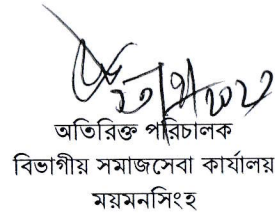 অতিরিক্ত পরিচালক
বিভাগীয় সমাজসেবা কার্যালয়
ময়মনসিংহ